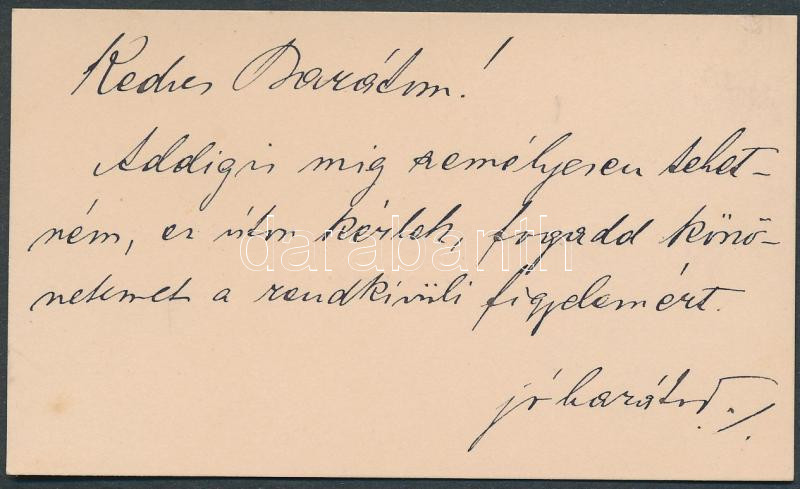 Kedves Barátom!
Addig is mig személyesen tehet-
ném, ez úton kérlek, fogadd köszö-
netemet a rendkívüli figyelemért.
jó barátod
darabanth